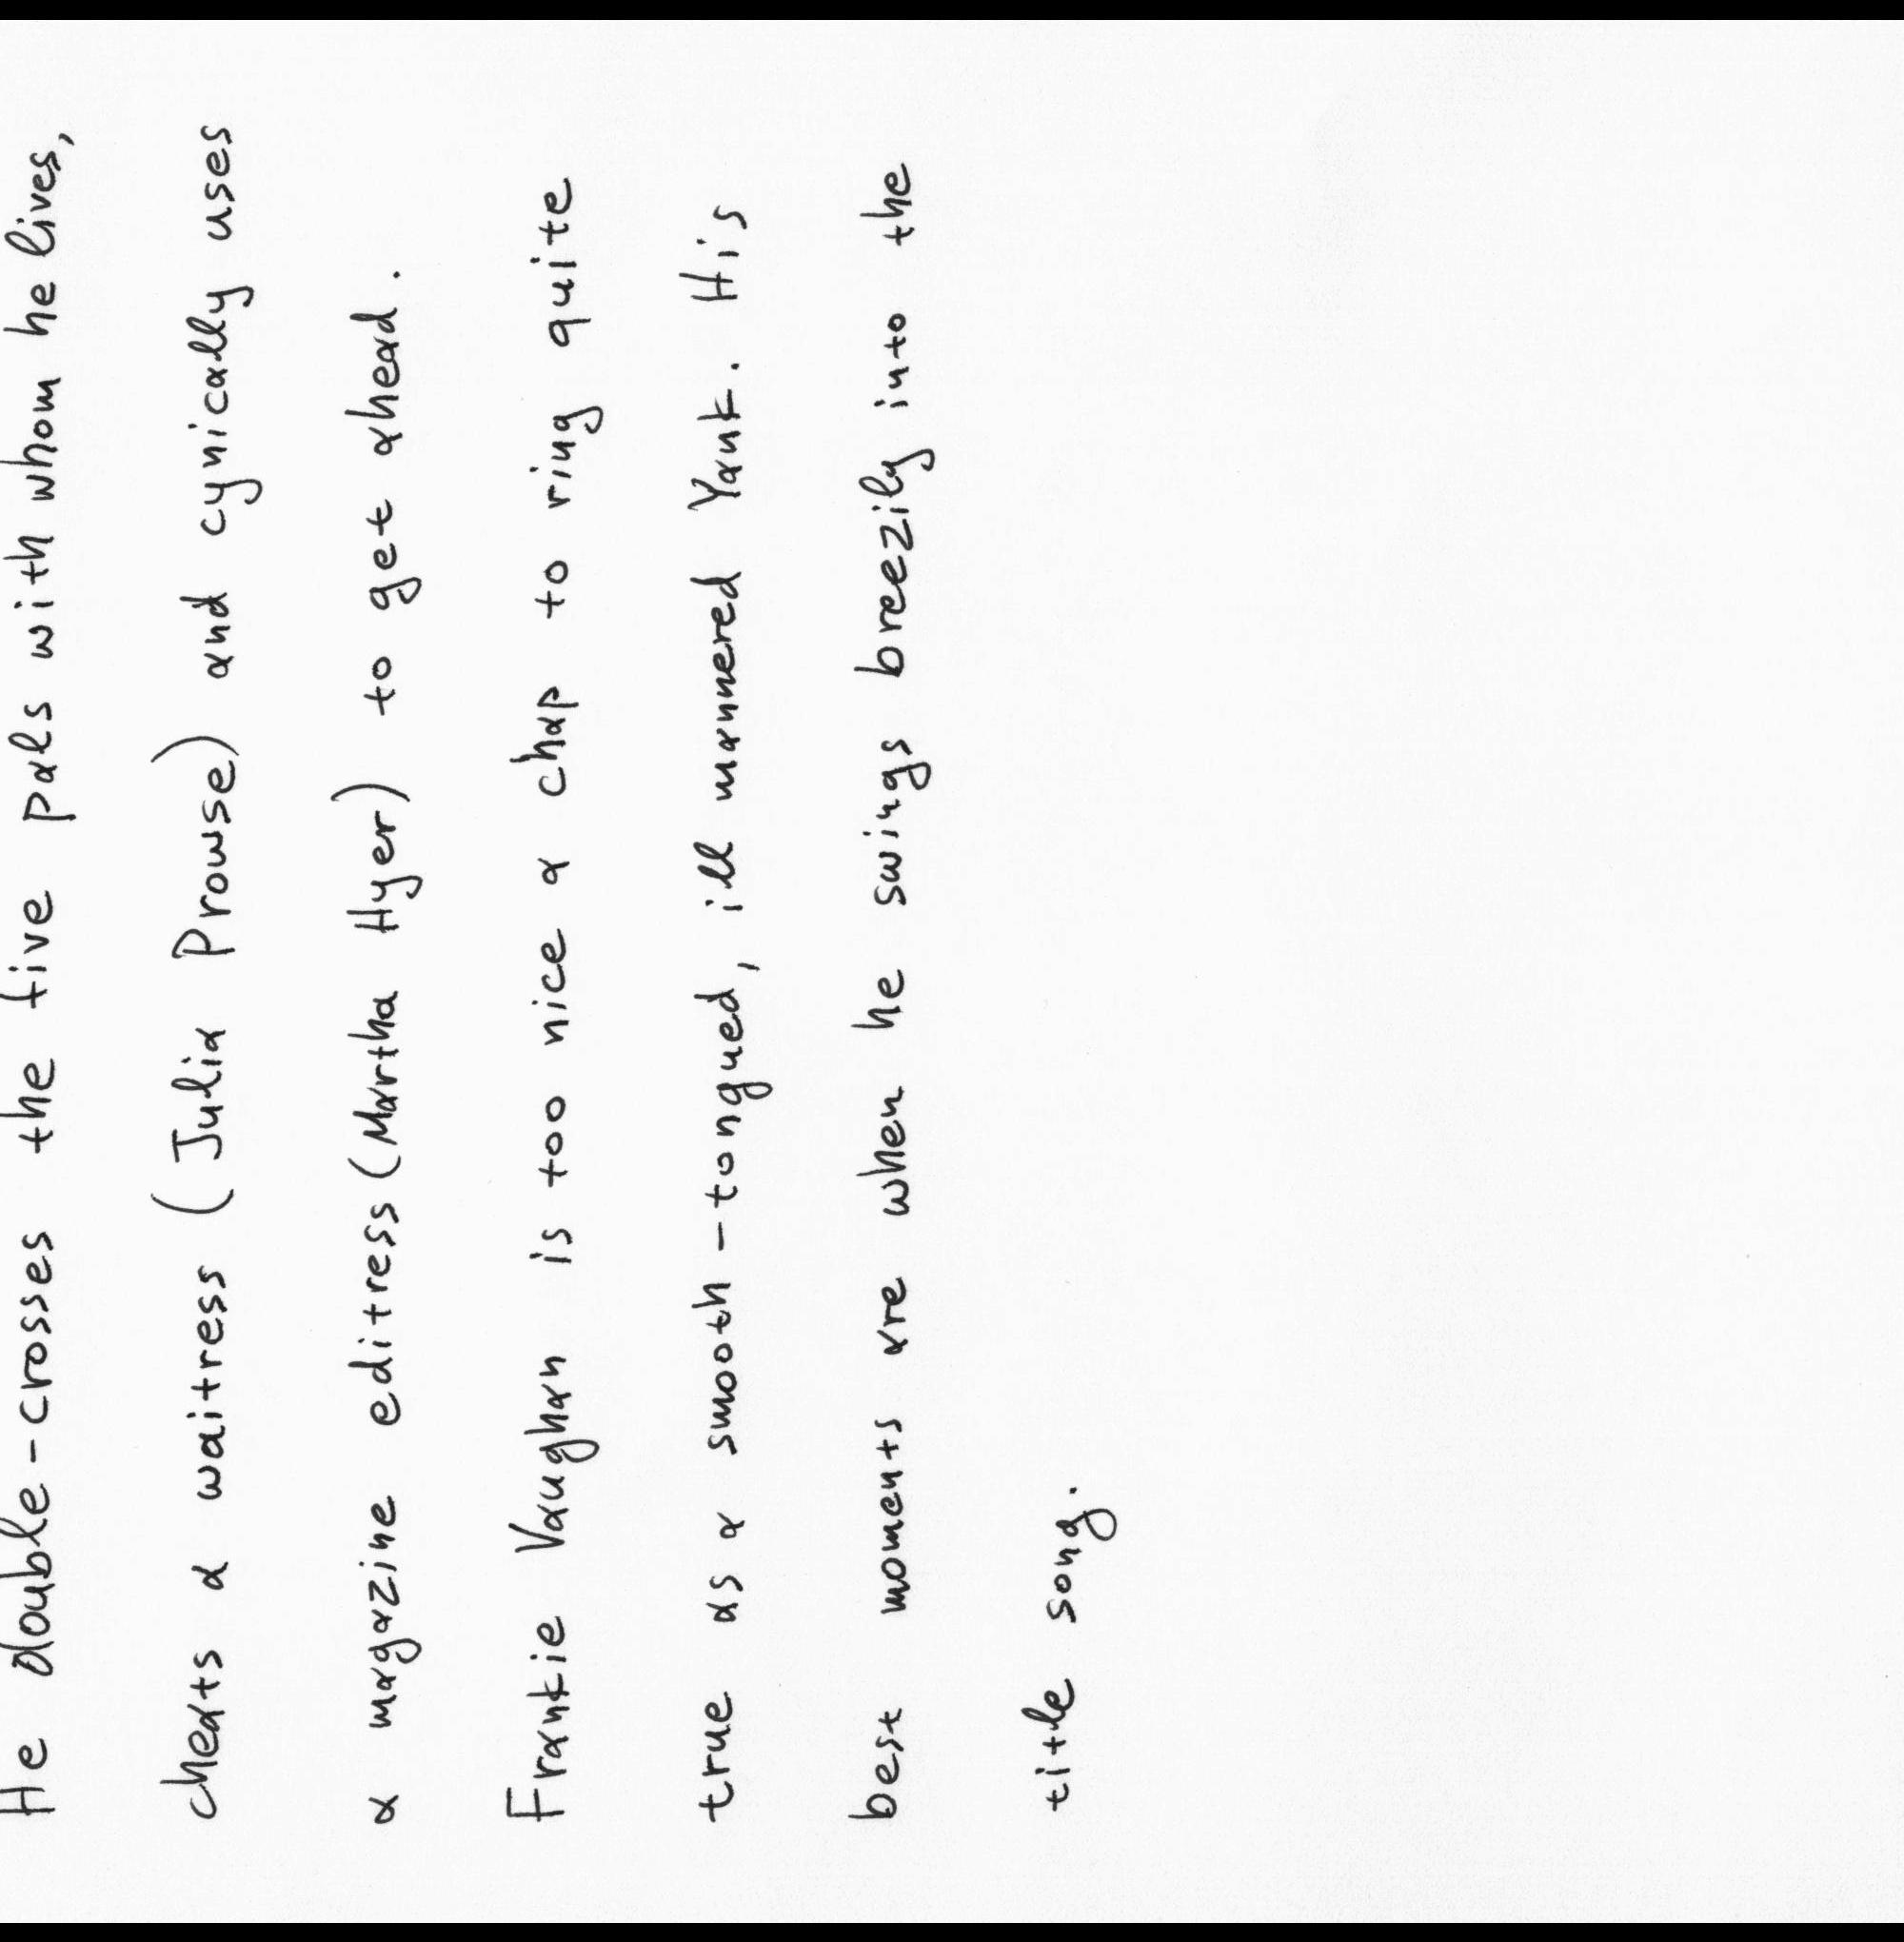 He double-crosses the five pals with whom he lives,
cheats a waitress (Julia Prowse) and cynically uses
a magazine editress (Martha Hyer) to get ahead.
Frankie Vaughan is too nice a chap to ring quite
true as a smooth-tongued, ill mannered Yank. His
best moments are when he swings breezily into the
title song.